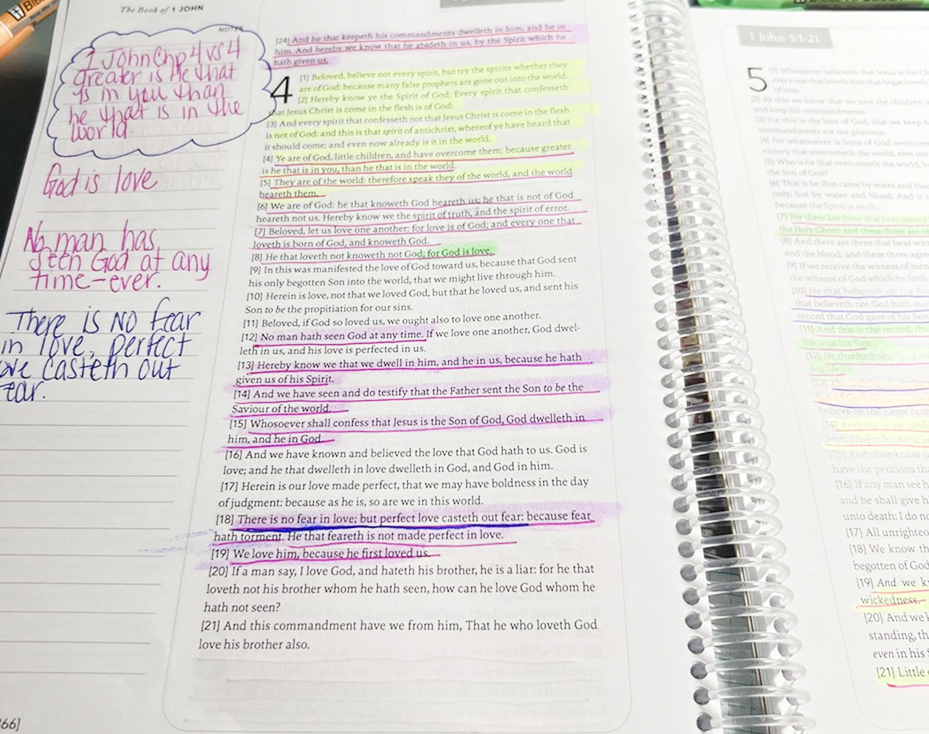 The Book of 1 JOHN
NOTES
1 John Chp 4 vs 4
greater is He that
is in you than
he that is in the
world
God is love
No man has
seen God at any
time-ever.
There is NO fear
in love, perfect
love casteth out
fear.
[24] And he that keepeth his commandments dwelleth in him, and he in
him. And hereby we know that he abideth in us, by the Spirit which he
hath given us.
4 [1] Beloved, believe not every spirit, but try the spirits whether they
are of God: because many false prophets are gone out into the world.
[2] Hereby know ye the Spirit of God: Every spirit that confesseth
that Jesus Christ is come in the flesh is of God:
[3] And every spirit that confesseth not that Jesus Christ is come in the flesh
is not of God: and this is that spirit of antichrist, whereof ye have heard that
it should come; and even now already is it in the world.
[4] Ye are of God, little children, and have overcome them: because greater
is he that is in you, than he that is in the world.
[5] They are of the world: therefore speak they of the world, and the world
heareth them.
[6] We are of God: he that knoweth God heareth us; he that is not of God
heareth not us. Hereby know we the spirit of truth, and the spirit of error.
[7] Beloved, let us love one another: for love is of God; and every one that
loveth is born of God, and knoweth God.
[8] He that loveth not knoweth not God; for God is love.
[9] In this was manifested the love of God toward us, because that God sent
his only begotten Son into the world, that we might live through him.
[10] Herein is love, not that we loved God, but that he loved us, and sent his
Son to be the propitiation for our sins.
[11] Beloved, if God so loved us, we ought also to love one another.
[12] No man hath seen God at any time. If we love one another, God dwel-
leth in us, and his love is perfected in us.
[13] Hereby know we that we dwell in him, and he in us, because he hath
given us of his Spirit.
[14] And we have seen and do testify that the Father sent the Son to be the
Saviour of the world.
[15] Whosoever shall confess that Jesus is the Son of God, God dwelleth in
him, and he in God.
[16] And we have known and believed the love that God hath to us. God is
love; and he that dwelleth in love dwelleth in God, and God in him.
[17] Herein is our love made perfect, that we may have boldness in the day
of judgment: because as he is, so are we in this world.
[18] There is no fear in love; but perfect love casteth out fear: because fear
hath torment. He that feareth is not made perfect in love.
[19] We love him, because he first loved us.
[20] If a man say, I love God, and hateth his brother, he is a liar: for he that
loveth not his brother whom he hath seen, how can he love God whom he
hath not seen?
[21] And this commandment have we from him, That he who loveth God
love his brother also.
66]
1 John 5:1-21
5 [1] Whosoever believeth that Jesus is the Ch
of him.
[2] By this we know that we love the children o
and keep his commandments.
[3] For this is the love of God, that we keep h
commandments are not grievous.
[4] For whatsoever is born of God overcome
victory that overcometh the world, even ou
[5] Who is he that overcometh the world, b
the Son of God?
[6] This is he that came by water and bloo
only, but by water and blood. And it i
because the Spirit is truth.
[7] For there are three that bear record
the Holy Ghost: and these three are o
[8] And there are three that bear wit
and the blood: and these three agre
[9] If we receive the witness of men
the witness of God which he hath
[10] He that believeth on the
that believeth not God hath
record that God gave of his Son
[11] And this is the record, th
[12] He that hath
believe on the name
have the petitions th
[16] If any man see h
and he shall give h
unto death: I do no
[17] All unrighteo
[18] We know th
begotten of God
[19] And we k
wickedness.
[20] And we k
standing, th
even in his
[21] Little